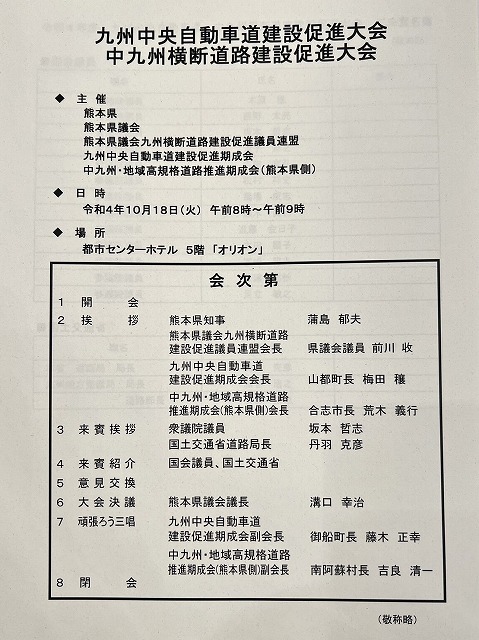 九州中央自動車道建設促進大会
中九州横断道路建設促進大会
◆ 主 催
熊本県
熊本県議会
熊本県議会九州横断道路建設促進議員連盟
九州中央自動車道建設促進期成会
中九州・地域高規格道路推進期成会(熊本県側)
◆ 日 時
令和4年10月18日(火) 午前8時~午前9時
◆ 場 所
都市センターホテル 5階 「オリオン」
会 次 第
1 開 会
2 挨 拶 熊本県知事 蒲島 郁夫
熊本県議会九州横断道路
建設促進議員連盟会長 県議会議員 前川 收
九州中央自動車道
建設促進期成会会長 山都町長 梅田 穰
中九州・地域高規格道路
推進期成会(熊本県側)会長 合志市長 荒木 義行
3 来賓挨拶 衆議院議員 坂本 哲志
国土交通省道路局長 丹羽 克彦
4 来賓紹介 国会議員、国土交通省
5 意見交換
6 大会決議 熊本県議会議長 溝口 幸治
7 頑張ろう三唱 九州中央自動車道
建設促進期成会副会長 御船町長 藤木 正幸
中九州・地域高規格道路
推進期成会(熊本県側)副会長 南阿蘇村長 吉良 清一
8 閉 会
(敬称略)